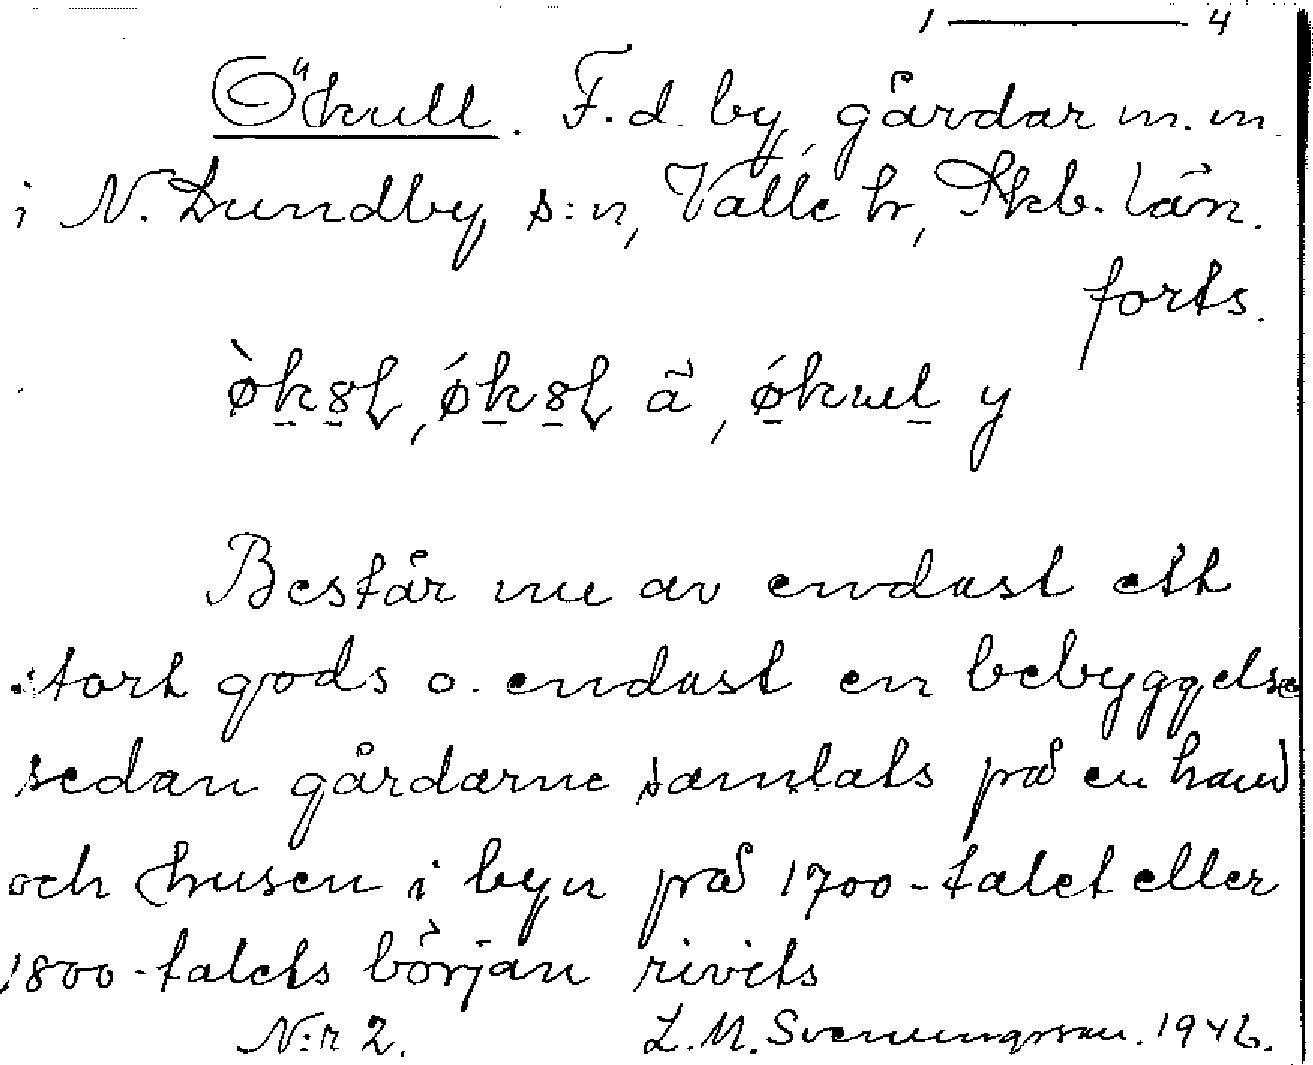 1 ——— 4
Ökull. F.d. by, gårdar m.m.
i N. Lundby s:n, Valle hr, Skb. län.
forts.
ø̀k8ł, ǿk8ł ã, ǿkuł y
Består nu av endast ett
stort gods o. endast en bebyggelse
sedan gårdarne samlats på en hand
och husen i byn på 1700-talet eller
1800-talets början rivits
N:r 2. L.M. Svenungsson. 1946.